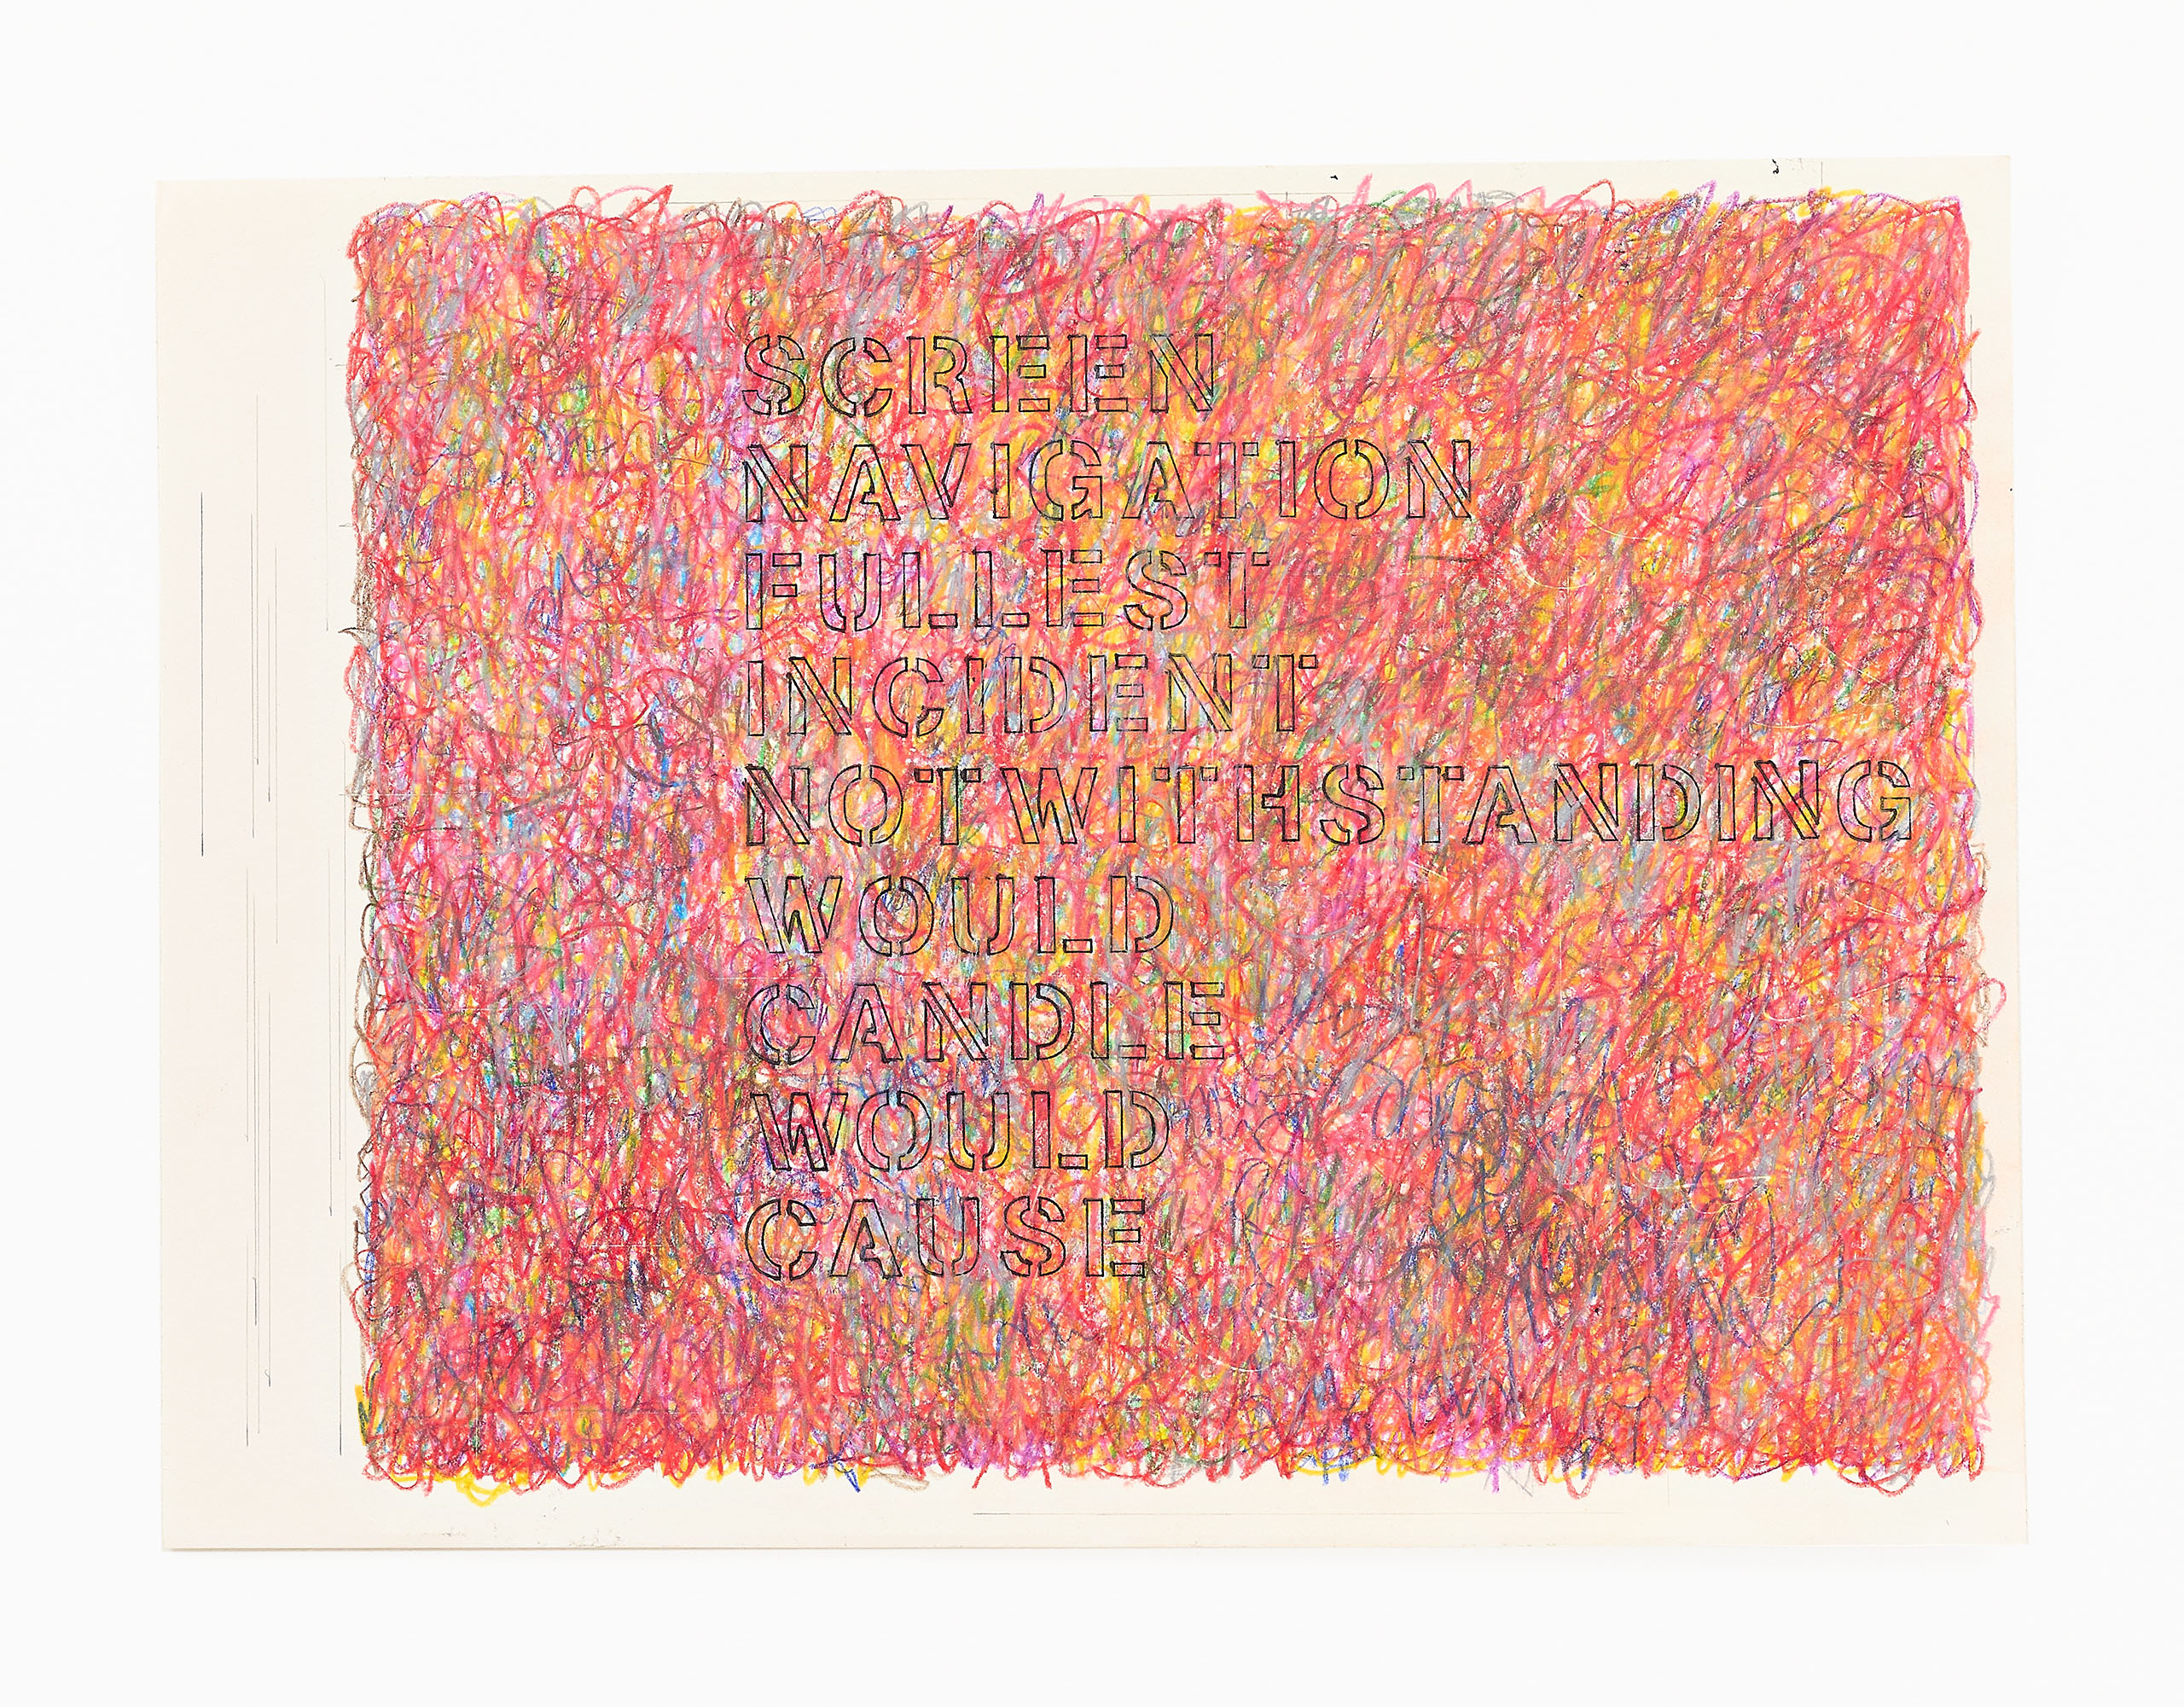 SCREEN
NAVIGATION
FULLEST
INCIDENT
NOTWITHSTANDING
WOULD
CANDLE
WOULD
CAUSE